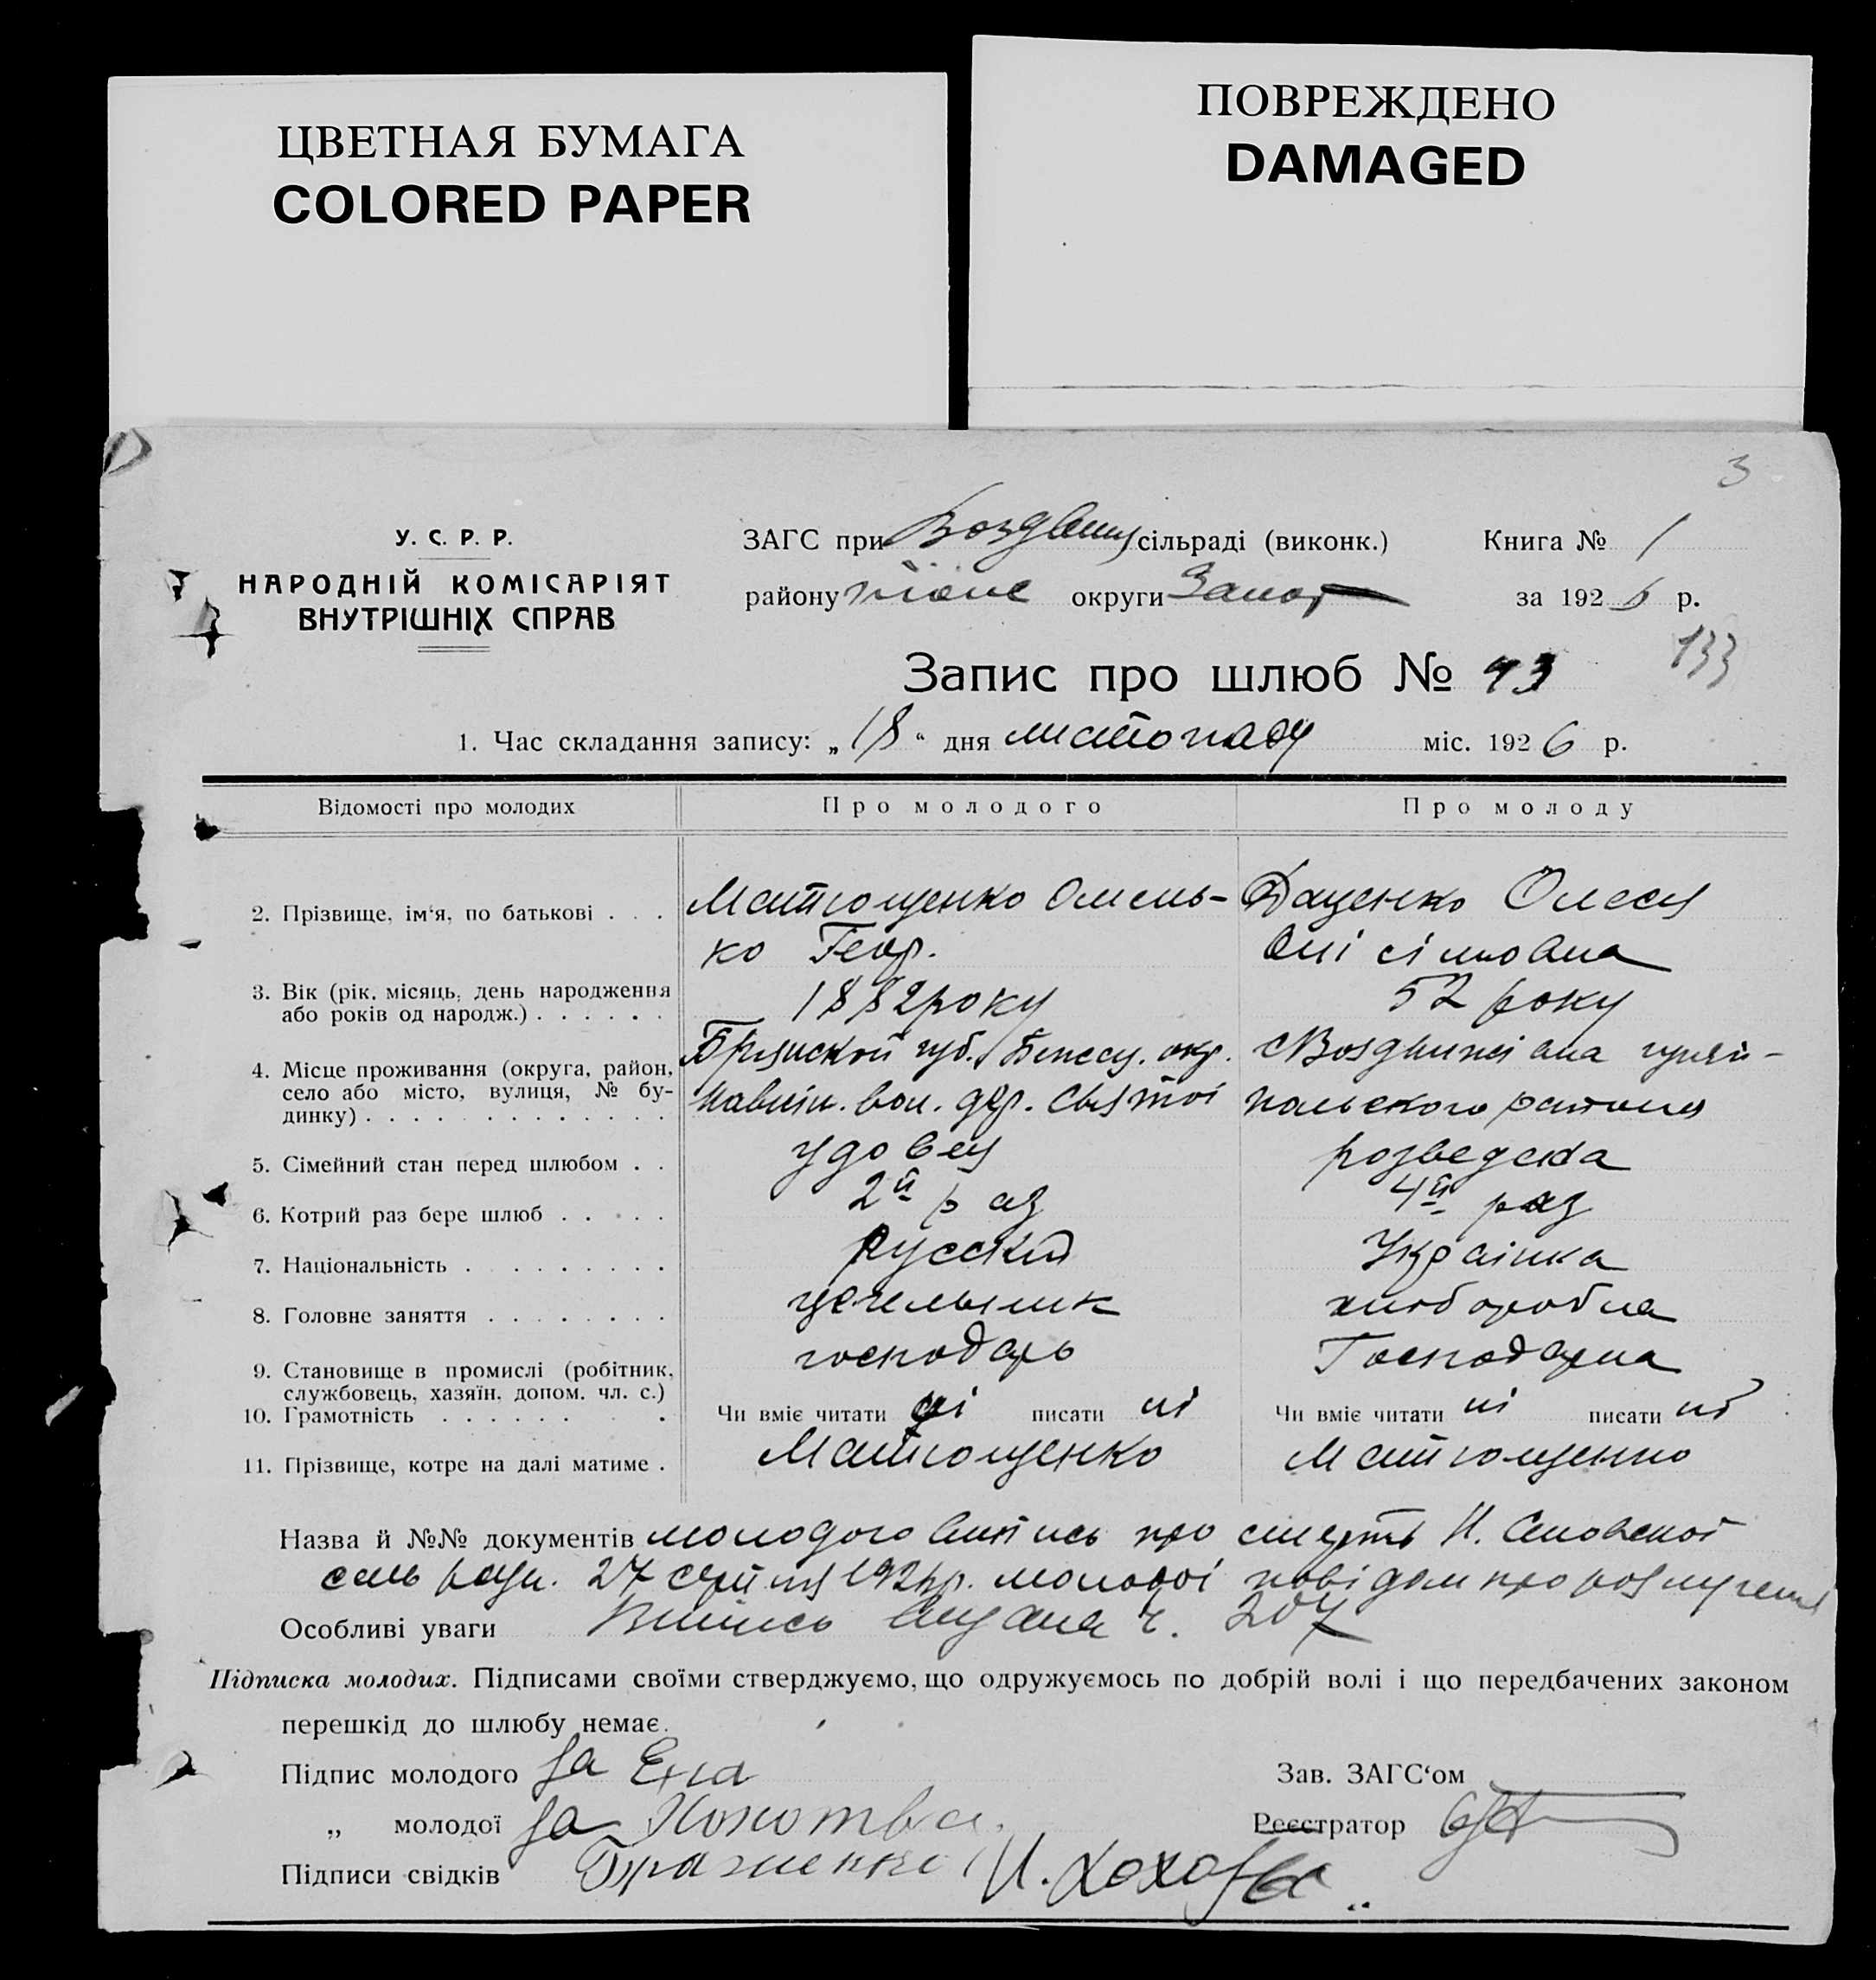 ЦВЕТНАЯ БУМАГА
COLORED PAPER
ПОВРЕЖДЕНО
DAMAGED
3
У. С. Р. Р.
НАРОДНІЙ КОМІСАРІЯТ
ВНУТРІШНІХ СПРАВ
ЗАГС при сільраді (виконк.) Книга № 1
району округи Запор за 1926 р.
133
Запис про шлюб № 43
1. Час складання запису: „18“ дня листопаду міс. 1926 р.
Відомості про молодих Про молодого Про молоду
2. Прізвище, ім‘я, по батькові . . . Матющенко Омель-
ко Геор.
Даценко Олеся
Онісімовна
3. Вік (рік, місяць, день народження
або років од народж.) . . . . . . 1882 року 52 року
4. Місце проживання (округа, район,
село або місто, вулиця, № бу-
динку) . . . . . . . . . . . . .
Брянской губ. окр.
вол. дер. Святої
гуляй-
польского района
5. Сімейний стан перед шлюбом . . удовец розведена
6. Котрий раз бере шлюб . . . . . 2й раз 4й раз
7. Національність . . . . . . . . . русский Українка
8. Головне заняття . . . . . . . . хліборобка
9. Становище в промислі (робітник,
службовець, хазяїн, допом. чл. с.) господарь Господарка
10. Грамотність . . . . . . . . Чи вміє читати ні писати ні Чи вміє читати ні писати ні
11. Прізвище, котре на далі матиме . Матющенко Матющенко
Назва й №№ документів молодого випись про смерть
27 молодої повідом про розлучення
Особливі уваги Випись видана ч. 207
Підписка молодих. Підписами своїми стверджуємо, що одружуємось по добрій волі і що передбачених законом
перешкід до шлюбу немає.
Підпис молодого за Зав. ЗАГС‘ом
„ молодої за Реєстратор
Підписи свідків